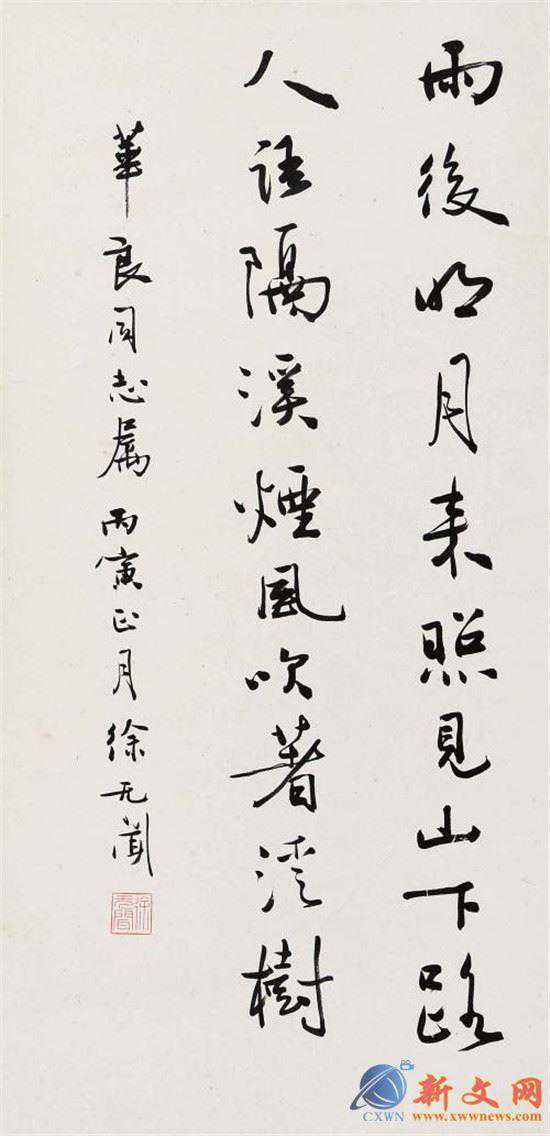 雨後明月来照見山下路
人語隔溪煙風吹著溪樹
華良同志属丙寅正月徐无聞
徐无聞
新文网
CXWN www.xwwnews.com